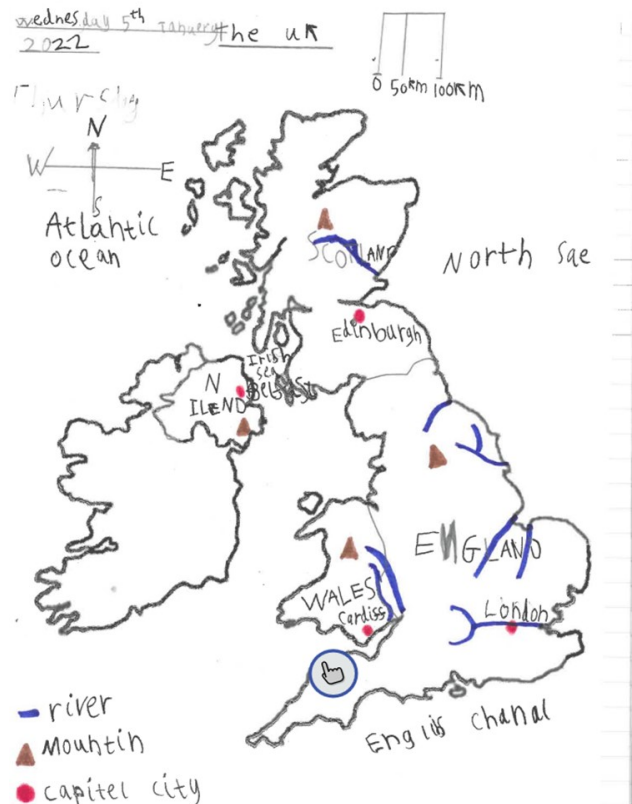 wednesday 5th January the UK
2022
0 50km 100km
Thursday
N
W E
S
Atlantic
ocean
SCOTLAND
North Sae
Edinburgh
Irish
sea
N
Belfast
ILEND
ENGLAND
WALES
Cardiss
London
Englis chanal
river
Mountin
capitel city